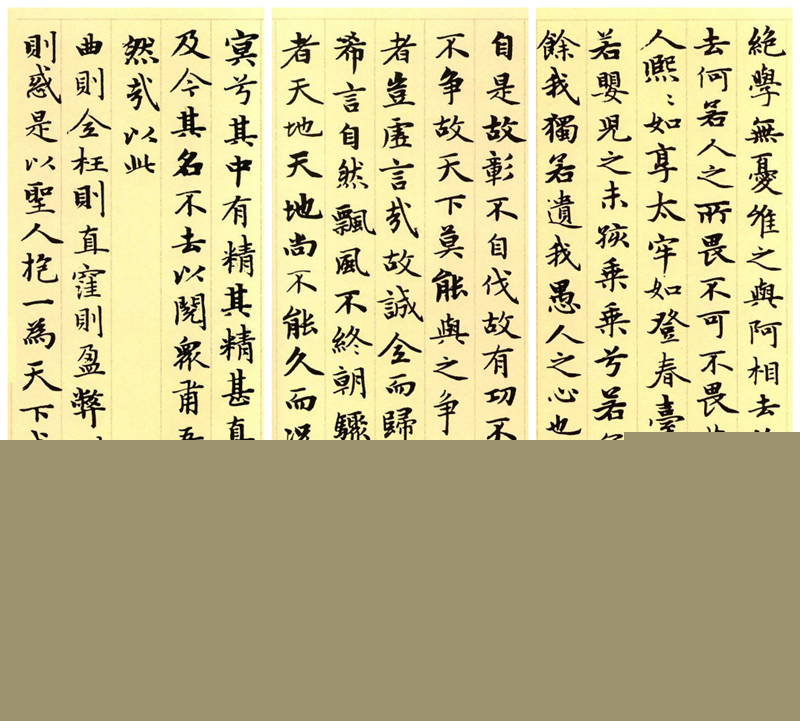 絕學無憂維之與阿相去
去何若人之所畏不可不畏
人熙〻如享太牢如登春臺
若嬰兒之未孩乘乘兮若
餘我獨若遺我愚人之心也
自是故彰不自伐故有功不
不争故天下莫能與之争
者豈虛言哉故誠全而歸
希言自然飄風不終朝驟
者天地天地尚不能久而況
冥兮其中有精其精甚真
及今其名不去以閱眾甫吾
然哉以此
曲則全枉則直窪則盈弊
則惑是以聖人抱一為天下